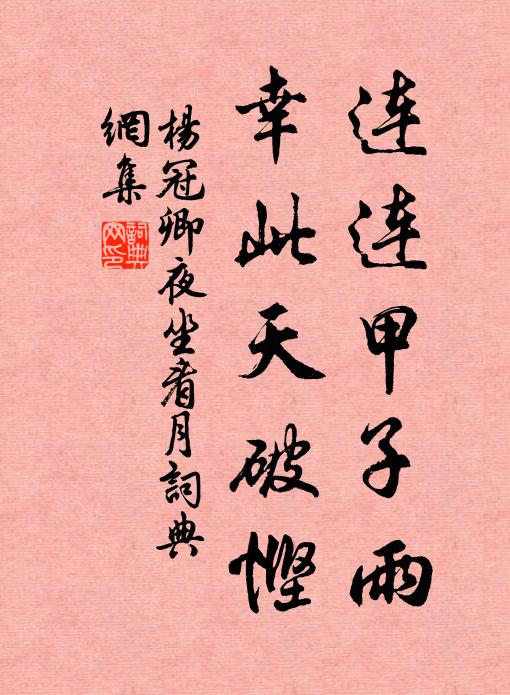 连连甲子雨
幸此天破悭
楊冠卿夜坐看月詞典
網集
詞典
网印